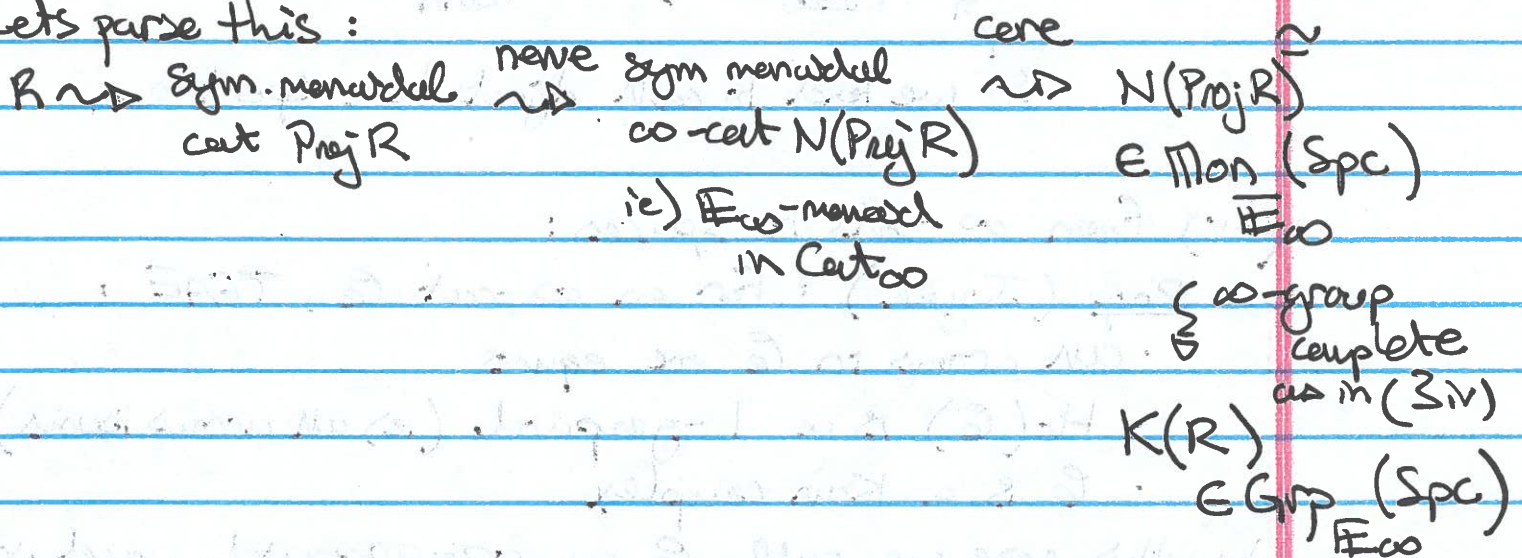 Lets parse this :
R ⇝ Sym. monoidal cat Proj R
nerve ⇝
sym monoidal ∞-cat N(Proj R)
ie) 𝔼∞-monoid in Cat∞
core ⇝
N(Proj R)~
∈ Mon𝔼∞ (Spc)
∞-group complete as in (3iv)
K(R)
∈ Grp𝔼∞ (Spc)